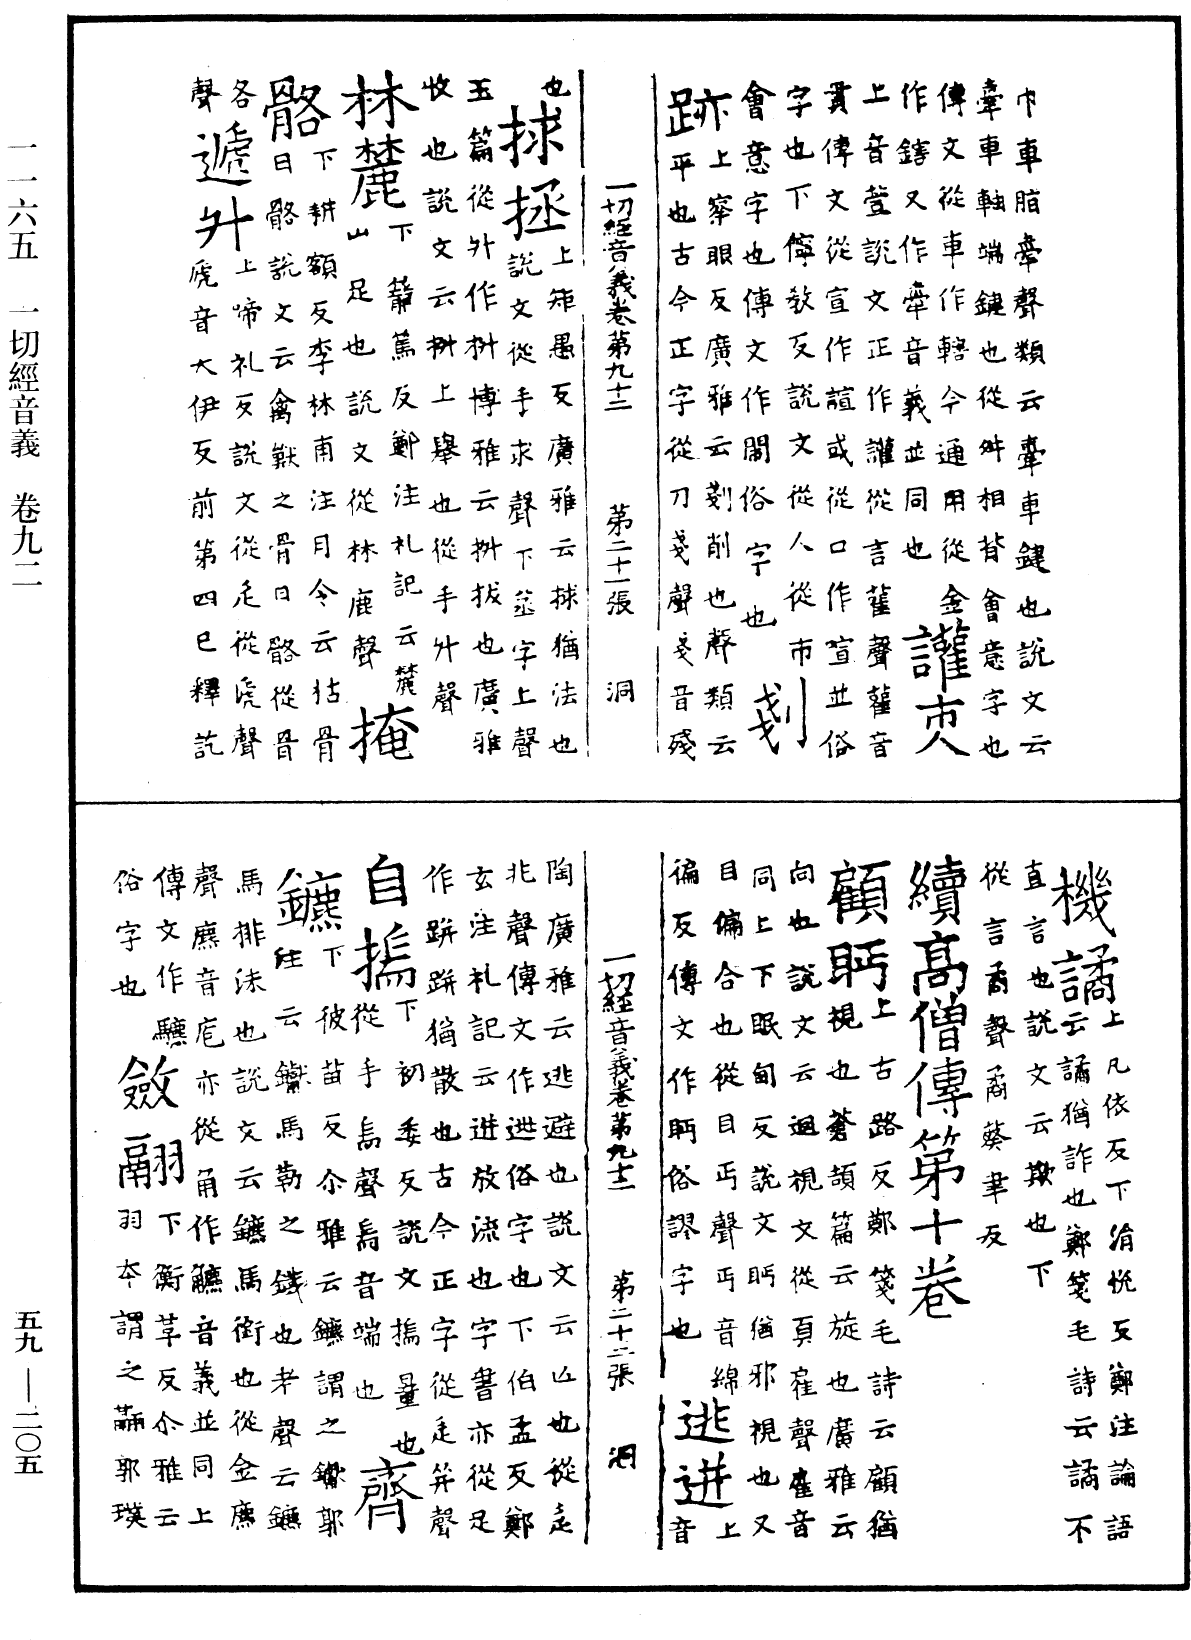 巾車脂舝聲類云舝車鍵也說文云
舝車軸端鍵也從舛相背會意字也
傳文從車作轄今通用從金
作鎋又作舝音義並同也 讙䦧
上音萱說文正作讙從言雚聲雚音
貫傳文從宣作諠或從口作喧並俗
字也下儜教反說文從人從市
會意字也傳文作閙俗字也 剗
跡上察眼反廣雅云剗削也聲類云
平也古今正字從刀戔聲戔音殘
一切經音義卷第九十二 第二十一張 洞
也 捄拯上矩愚反廣雅云捄猶法也
說文從手求聲下蒸字上聲
玉篇從廾作抍博雅云抍拔也廣雅
收也說文云抍上舉也從手升聲
林麓下籠篤反鄭注礼記云麓
山足也說文從林鹿聲 掩
骼下耕額反李林甫注月令云枯骨
曰骼說文云禽獸之骨曰骼從骨
各聲 遞升上啼礼反說文從辵從虒聲
虒音大伊反前第四已釋訖
機譎上凡依反下涓悅反鄭注論語
云譎猶詐也鄭箋毛詩云譎不
直言也說文云欺也下
從言矞聲矞葵聿反
續高僧傳第十卷
顧眄上古路反鄭箋毛詩云顧猶
視也蒼頡篇云旋也廣雅云
向也說文云迴視文從頁雇聲雇音
同上下眠甸反說文眄偤邪視也又
目偏合也從目丏聲丏音綿
徧反傳文作眄俗謬字也 逃迸上音
一切經音義卷第九十二 第二十二張 洞
陶廣雅云逃避也說文云亾也從辵
兆聲傳文作迯俗字也下伯孟反鄭
玄注礼記云迸放流也字書亦從足
作跰跰猶散也古今正字從辵并聲
自揣下初委反說文揣量也
從手耑聲耑音端也 齊
鑣下彼苗反尒雅云鑣謂之钀郭
注云钀馬勒之鐵也考聲云鑣
馬排沫也說文云鑣馬銜也從金麃
聲麃音庖亦從角作䚩音義並同上
傳文作驫
俗字也 斂翮下衡革反尒雅云
羽夲謂之翮郭璞
一一六五 一切經音義 卷九二
五九—二〇五